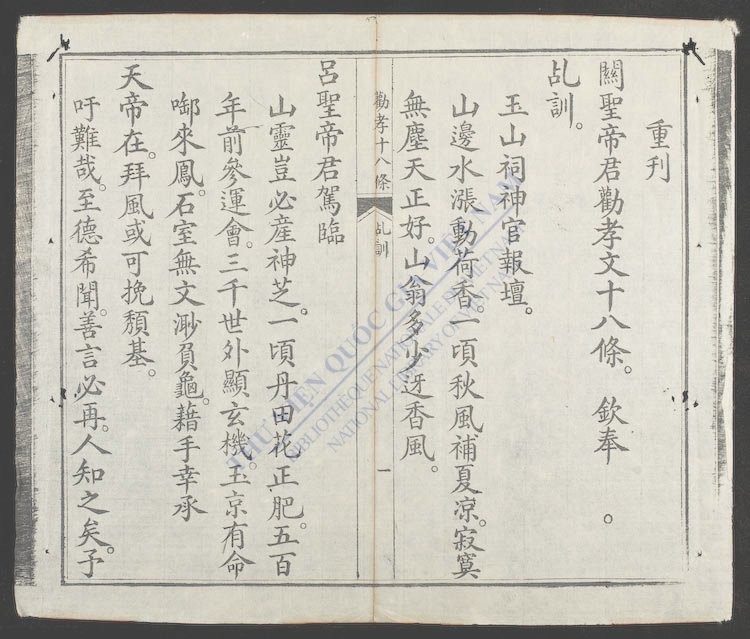 重刊
關聖帝君勸孝文十八條。欽奉。
乩訓。
玉山祠神官報壇。
山邊水漲動荷香。一頃秋風補夏凉。寂寞
無塵天正好。山翁多少迓香風。
勸孝十八條 乩訓 一
呂聖帝君駕臨
山靈豈必産神芝。一頃丹田花正肥。五百
年前參運會。三千世外顯玄機。玉京有命
啣來鳳。石室無文渺負龜。藉手幸承
天帝在。拜風或可挽頹基。
吁難哉。至德希聞。善言必再。人知之矣。予
THƯ VIỆN QUỐC GIA VIỆT NAM
BIBLIOTHÈQUE NATIONALE DE VIETNAM
NATIONAL LIBRARY OF VIETNAM